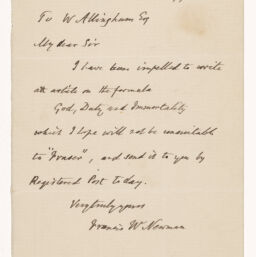 To W Allingham Esq
My dear Sir
I have been impelled to write
an article on the formula
God, Duty and Immortality
which I hope will not be unsuitable
to "Fraser", and send it to you by
Registered Post today.
Very truly yours
Francis W Newman